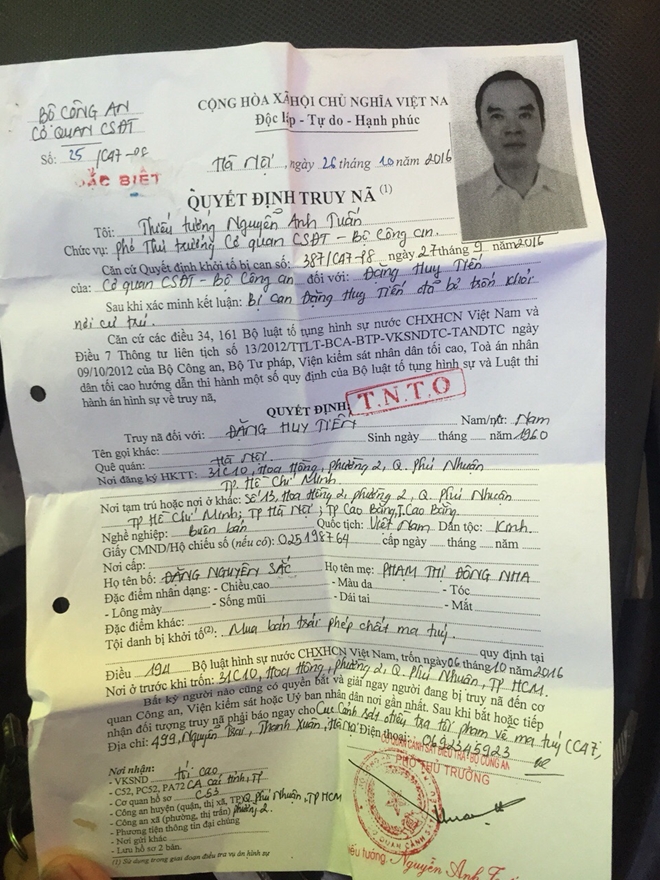 BỘ CÔNG AN
CƠ QUAN CSĐT
Số: 25 /C47-P8
ĐẶC BIỆT
CỘNG HÒA XÃ HỘI CHỦ NGHĨA VIỆT NA
Độc lập - Tự do - Hạnh phúc
Hà Nội, ngày 26 tháng 10 năm 2016
QUYẾT ĐỊNH TRUY NÃ (1)
Tôi: Thiếu tướng Nguyễn Anh Tuấn
Chức vụ: Phó Thủ trưởng Cơ quan CSĐT - Bộ Công an.
Căn cứ Quyết định khởi tố bị can số: 387/C47-P8 ngày 27 tháng 9 năm 2016
của: Cơ quan CSĐT - Bộ Công an đối với: Đặng Huy Tiến
Sau khi xác minh kết luận: Bị can Đặng Huy Tiến đã bỏ trốn khỏi
nơi cư trú.
Căn cứ các điều 34, 161 Bộ luật tố tụng hình sự nước CHXHCN Việt Nam và
Điều 7 Thông tư liên tịch số 13/2012/TTLT-BCA-BTP-VKSNDTC-TANDTC ngày
09/10/2012 của Bộ Công an, Bộ Tư pháp, Viện kiểm sát nhân dân tối cao, Toà án nhân
dân tối cao hướng dẫn thi hành một số quy định của Bộ luật tố tụng hình sự và Luật thi
hành án hình sự về truy nã,
QUYẾT ĐỊNH:
T.N.T.O
Truy nã đối với: ĐẶNG HUY TIẾN Nam/nữ: Nam
Tên gọi khác: Sinh ngày tháng năm 1960
Quê quán: Hà Nội.
Nơi đăng ký HKTT: 31C10, Hoa Hồng, phường 2, Q. Phú Nhuận
TP Hồ Chí Minh.
Nơi tạm trú hoặc nơi ở khác: Số 13, Hoa Hồng 2, phường 2, Q. Phú Nhuận
TP Hồ Chí Minh; TP Hà Nội; TP Cao Bằng, T. Cao Bằng.
Nghề nghiệp: buôn bán Quốc tịch: Việt Nam Dân tộc: Kinh.
Giấy CMND/Hộ chiếu số (nếu có): 025198764 cấp ngày tháng năm
Nơi cấp:
Họ tên bố: ĐẶNG NGUYÊN SẮC Họ tên mẹ: PHẠM THỊ ĐÔNG NHA
Đặc điểm nhân dạng: - Chiều cao - Màu da - Tóc
- Lông mày - Sống mũi - Dái tai - Mắt
Đặc điểm khác:
Tội danh bị khởi tố(2): Mua bán trái phép chất ma tuý. quy định tại
Điều 194 Bộ luật hình sự nước CHXHCN Việt Nam, trốn ngày 06 tháng 10 năm 2016
Nơi ở trước khi trốn: 31C10, Hoa Hồng, phường 2, Q. Phú Nhuận, TP HCM.
Bất kỳ người nào cũng có quyền bắt và giải ngay người đang bị truy nã đến cơ
quan Công an, Viện kiểm sát hoặc Uỷ ban nhân dân nơi gần nhất. Sau khi bắt hoặc tiếp
nhận đối tượng truy nã phải báo ngay cho Cục Cảnh sát điều tra tội phạm về ma tuý (C47,
Địa chỉ: 499, Nguyễn Trãi, Thanh Xuân, Hà Nội Điện thoại: 0692345923
CƠ QUAN CẢNH SÁT ĐIỀU TRA - BỘ CÔNG AN
PHÓ THỦ TRƯỞNG
Nơi nhận:
- VKSND tối cao
- C52, PC52, PA72 CA các tỉnh, TP
- Cơ quan hồ sơ C53
- Công an huyện (quận, thị xã, TP) Q. Phú Nhuận, TP HCM
- Công an xã (phường, thị trấn) phường 2.
- Phương tiện thông tin đại chúng
- Nơi gửi khác
- Lưu hồ sơ 2 bản.
(1) Sử dụng trong giai đoạn điều tra vụ án hình sự
iếu tướng Nguyễn Anh